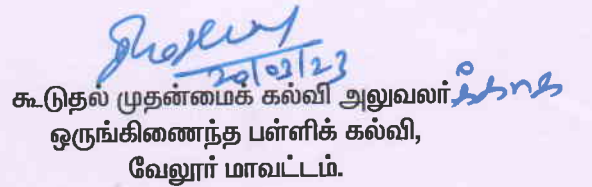 20/02/23
கூடுதல் முதன்மைக் கல்வி அலுவலர்
ஒருங்கிணைந்த பள்ளிக் கல்வி,
வேலூர் மாவட்டம்.